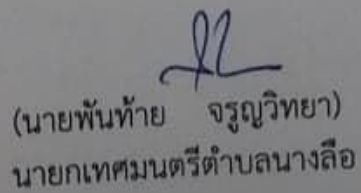 (นายพันท้าย จรูญวิทยา)
นายกเทศมนตรีตำบลนางลือ